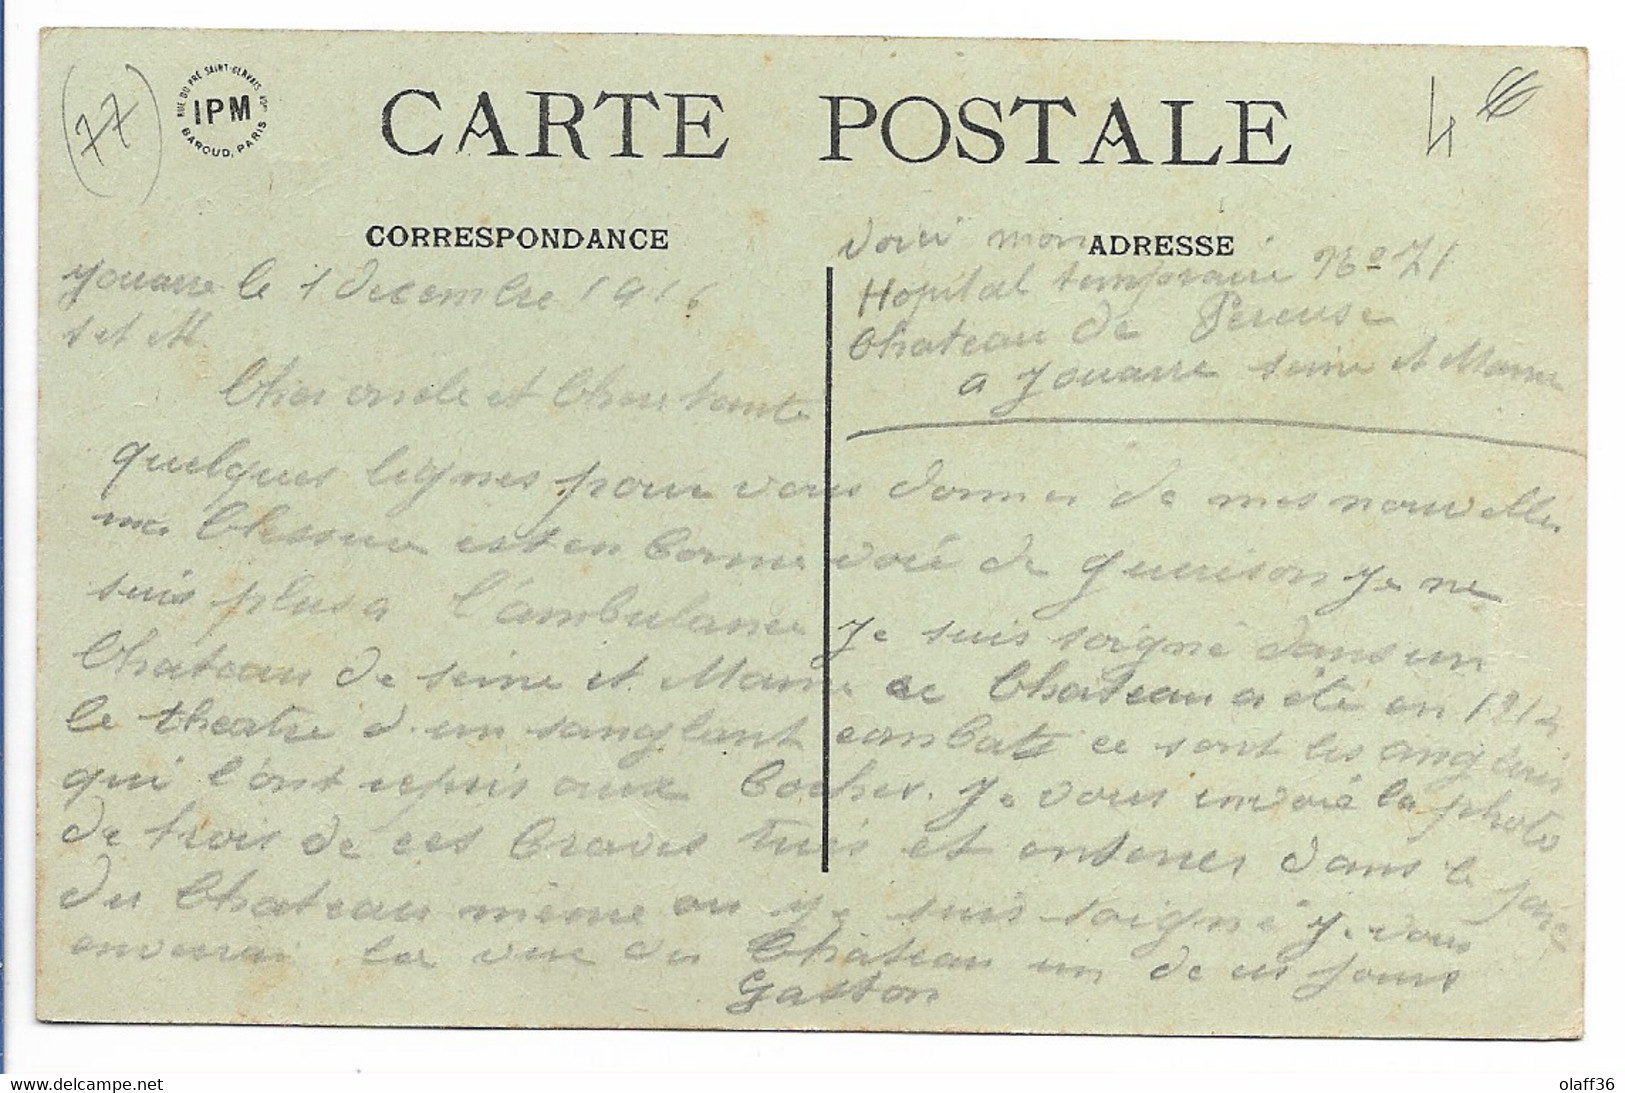 (77)
RUE DU PRÉ SAINT-GERVAIS
IPM
BAROUD, PARIS
CARTE POSTALE
4
CORRESPONDANCE
ADRESSE
Voici mon
Hopital temporaire No 71
Chateau de Pereuse
a Jouarre Seine et Marne
Jouarre le 1 decembre 1916
S et M.
Cher oncle et Cher tante
quelques lignes pour vous donner de mes nouvelles
ma blessure est en bonne voie de guerison Je ne
suis plus a l'ambulance Je suis soigné dans un
Chateau de Seine et Marne ce Chateau a été en 1914
le theatre d'un sanglant combats ce sont les anglais
qui l'ont repris aux boches. Je vous envoie la photo
de trois de ces braves tués et enterrer dans le parc
du Chateau même ou je suis soigné Je vous
enverrai la vue du Chateau un de ces jours
Gaston
olaff36